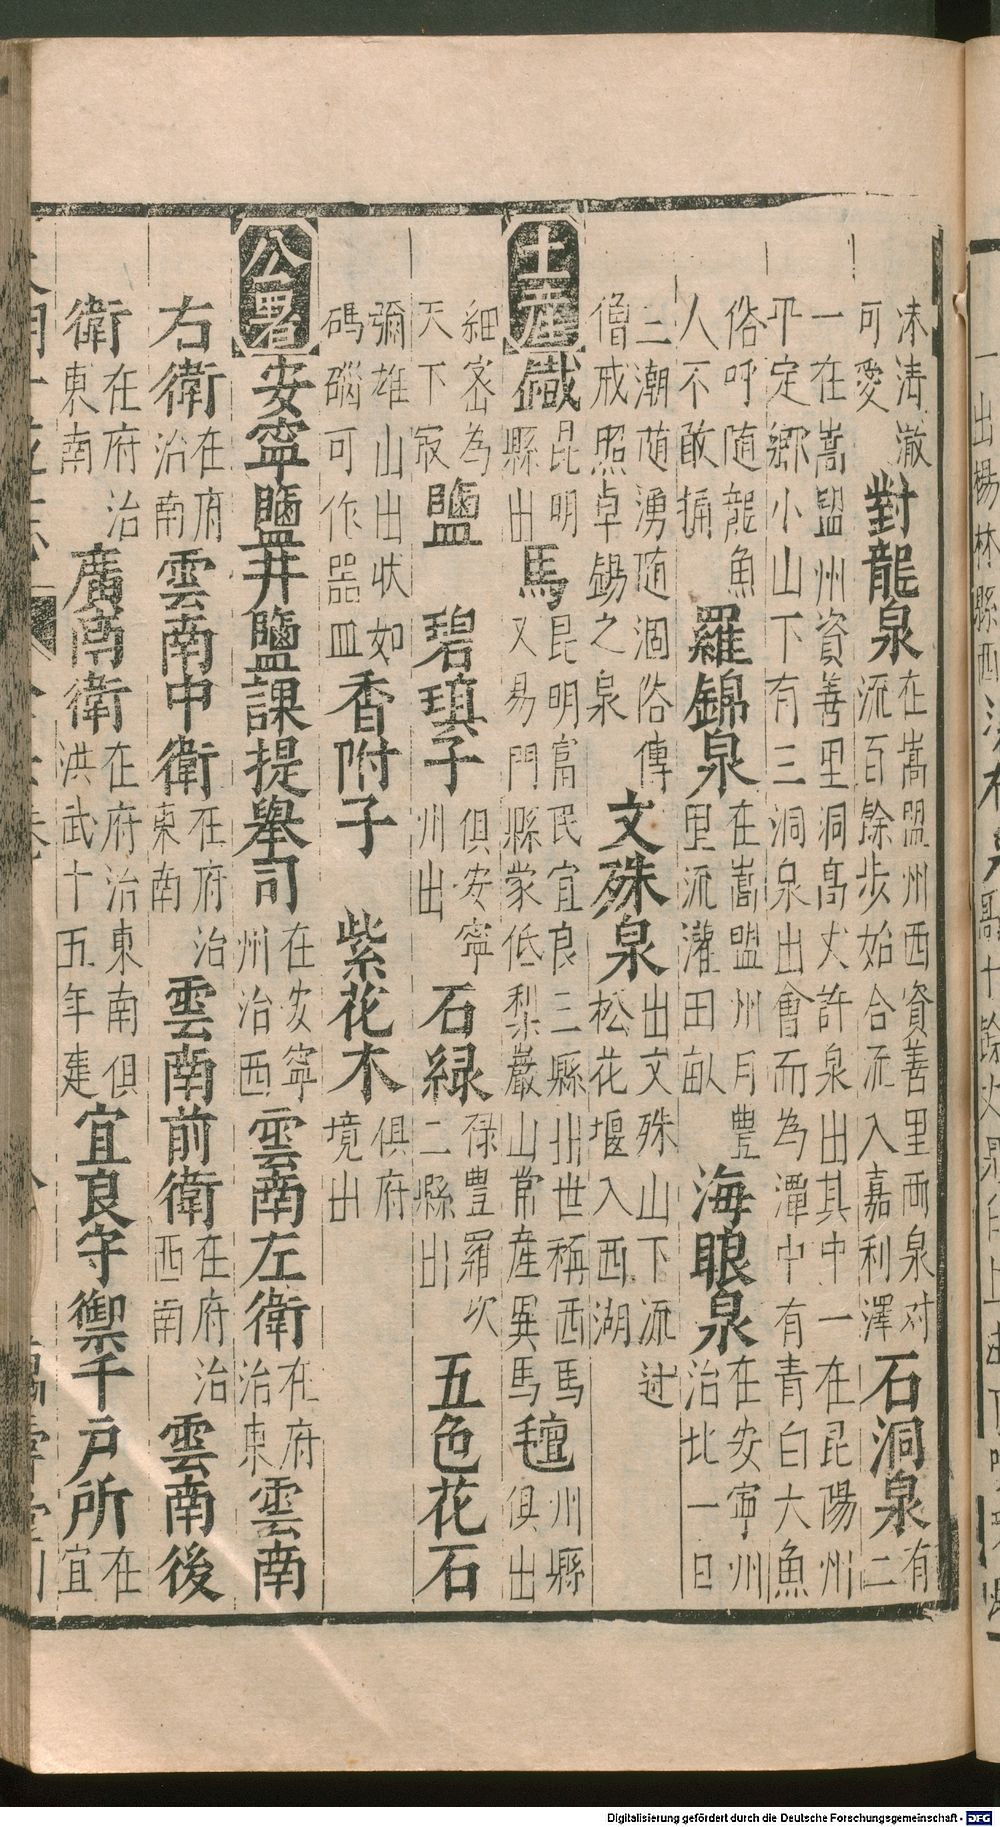 沬清澈
可愛
對龍泉
在嵩盟州西資善里兩泉对
流百餘步始合流入嘉利澤
石洞泉
有
二
一在嵩盟州資善里洞高丈許泉出其中一在昆陽州
平定鄉小山下有三洞泉出會而為潭中有青白大魚
俗呼随龍魚
人不敢捕
羅錦泉
在嵩盟州月豐
里流灌田畝
海眼泉
在安寧州
治北一日
三潮随湧随涸俗傳
僧戒照卓錫之泉
文殊泉
出文殊山下流过
松花堰入西湖
土產
鹹
昆明
縣出
馬
昆明富民宜良三縣出世稱西馬
又易門縣蒙低梨巖山常産異馬
氊
州縣
俱出
細宻為
天下㝡
鹽
碧瑱子
俱安寧
州出
石緑
禄豐羅次
二縣出
五色花石
彌雄山出状如
碼碯可作器皿
香附子
紫花木
俱府
境出
公署
安寧鹽井鹽課提舉司
在安寧
州治西
雲南左衛
在府
治東
雲南
右衛
在府
治南
雲南中衛
在府治
東南
雲南前衛
在府治
西南
雲南後
衛
在府治
東南
廣南衛
在府治東南俱
洪武十五年建
宜良守禦千戶所
在
宜
Digitalisierung gefördert durch die Deutsche Forschungsgemeinschaft - DFG